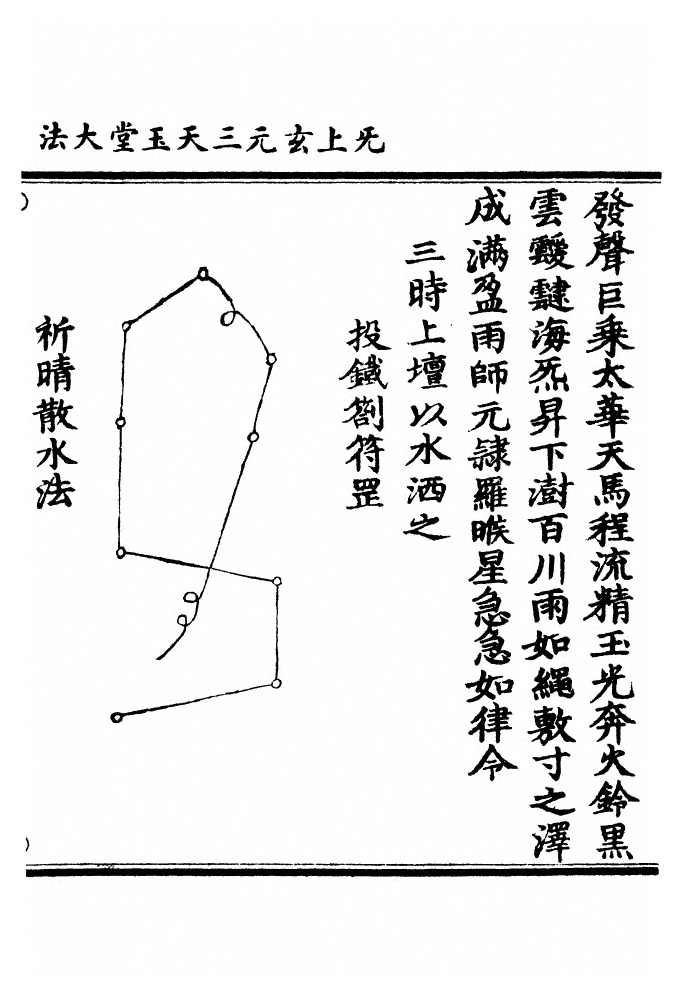 无上玄元三天玉堂大法
發聲巨乘太華天馬程流精玉光奔火鈴黑
雲靉靆海炁昇下澍百川雨如繩敷寸之澤
成滿盈雨師元隷羅睺星急急如律令
三時上壇以水洒之
投鐵劄符罡
祈晴散水法